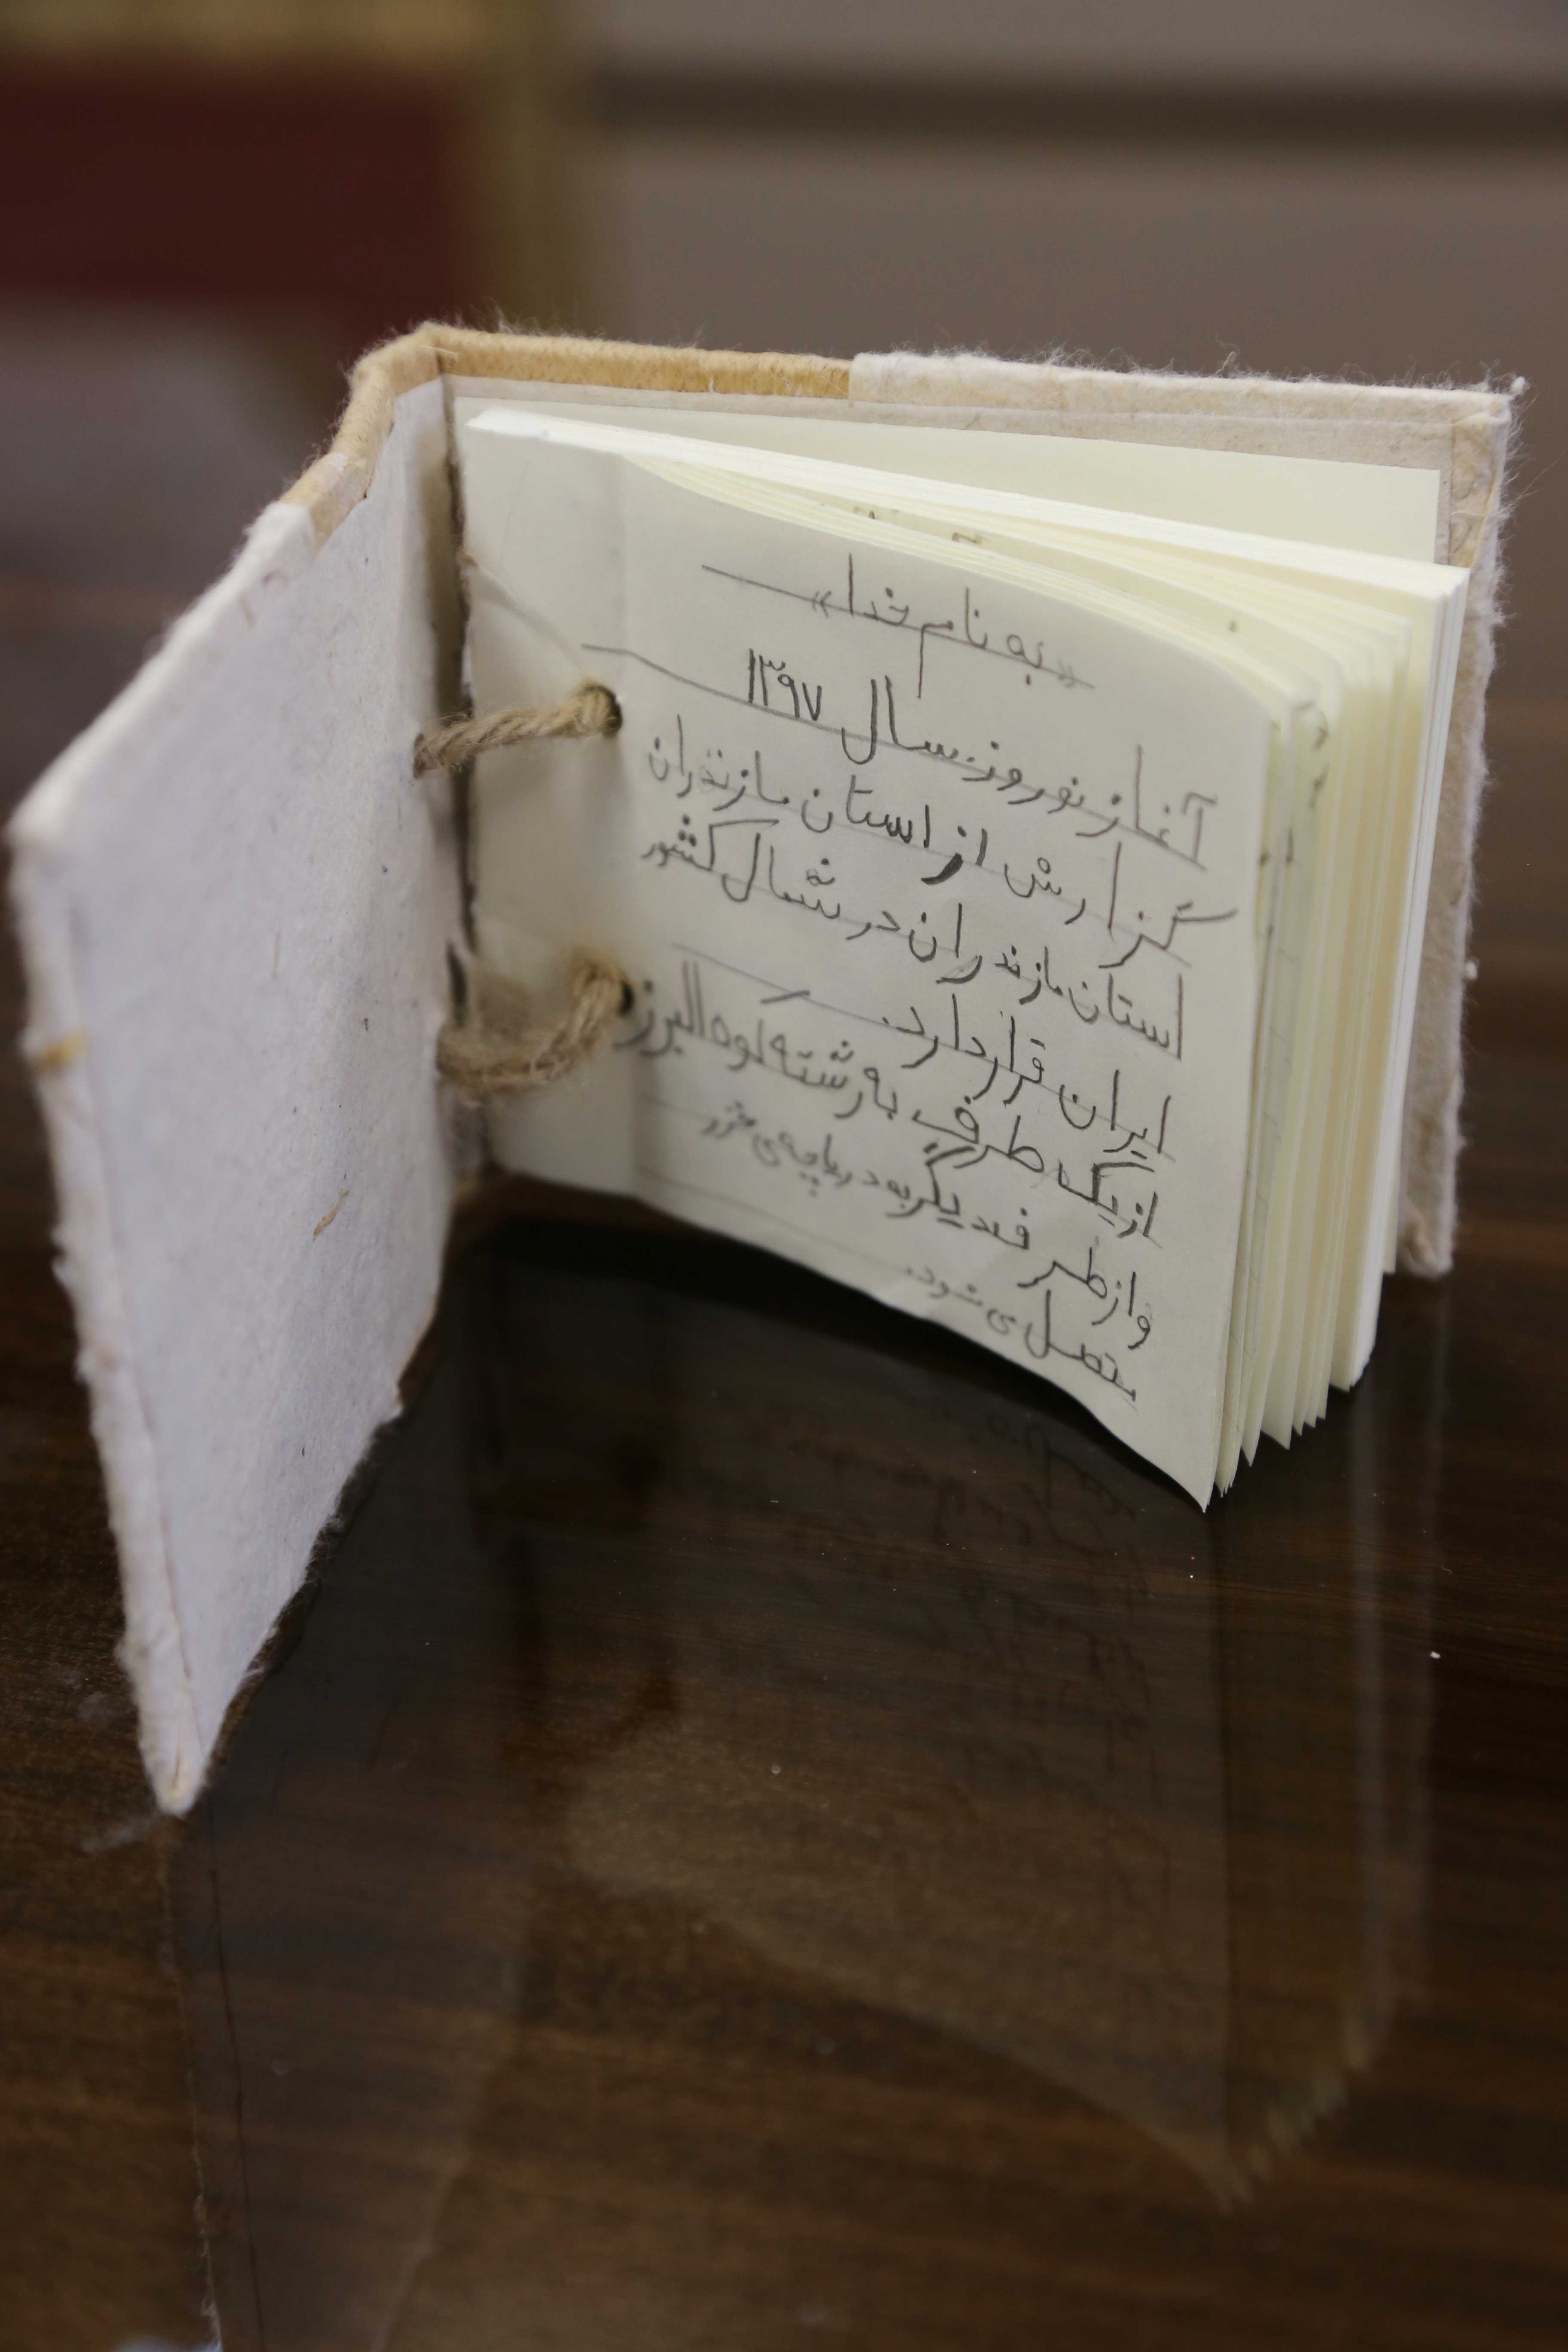 «به نام خدا»
آغاز نوروز سال ۱۳۹۷
گزارش از استان مازندران
استان مازندران در شمال کشور
ایران قرار دارد.
از یک طرف به رشته کوه البرز
و از طرف دیگر به دریاچه‌ی خزر
متصل می شود.